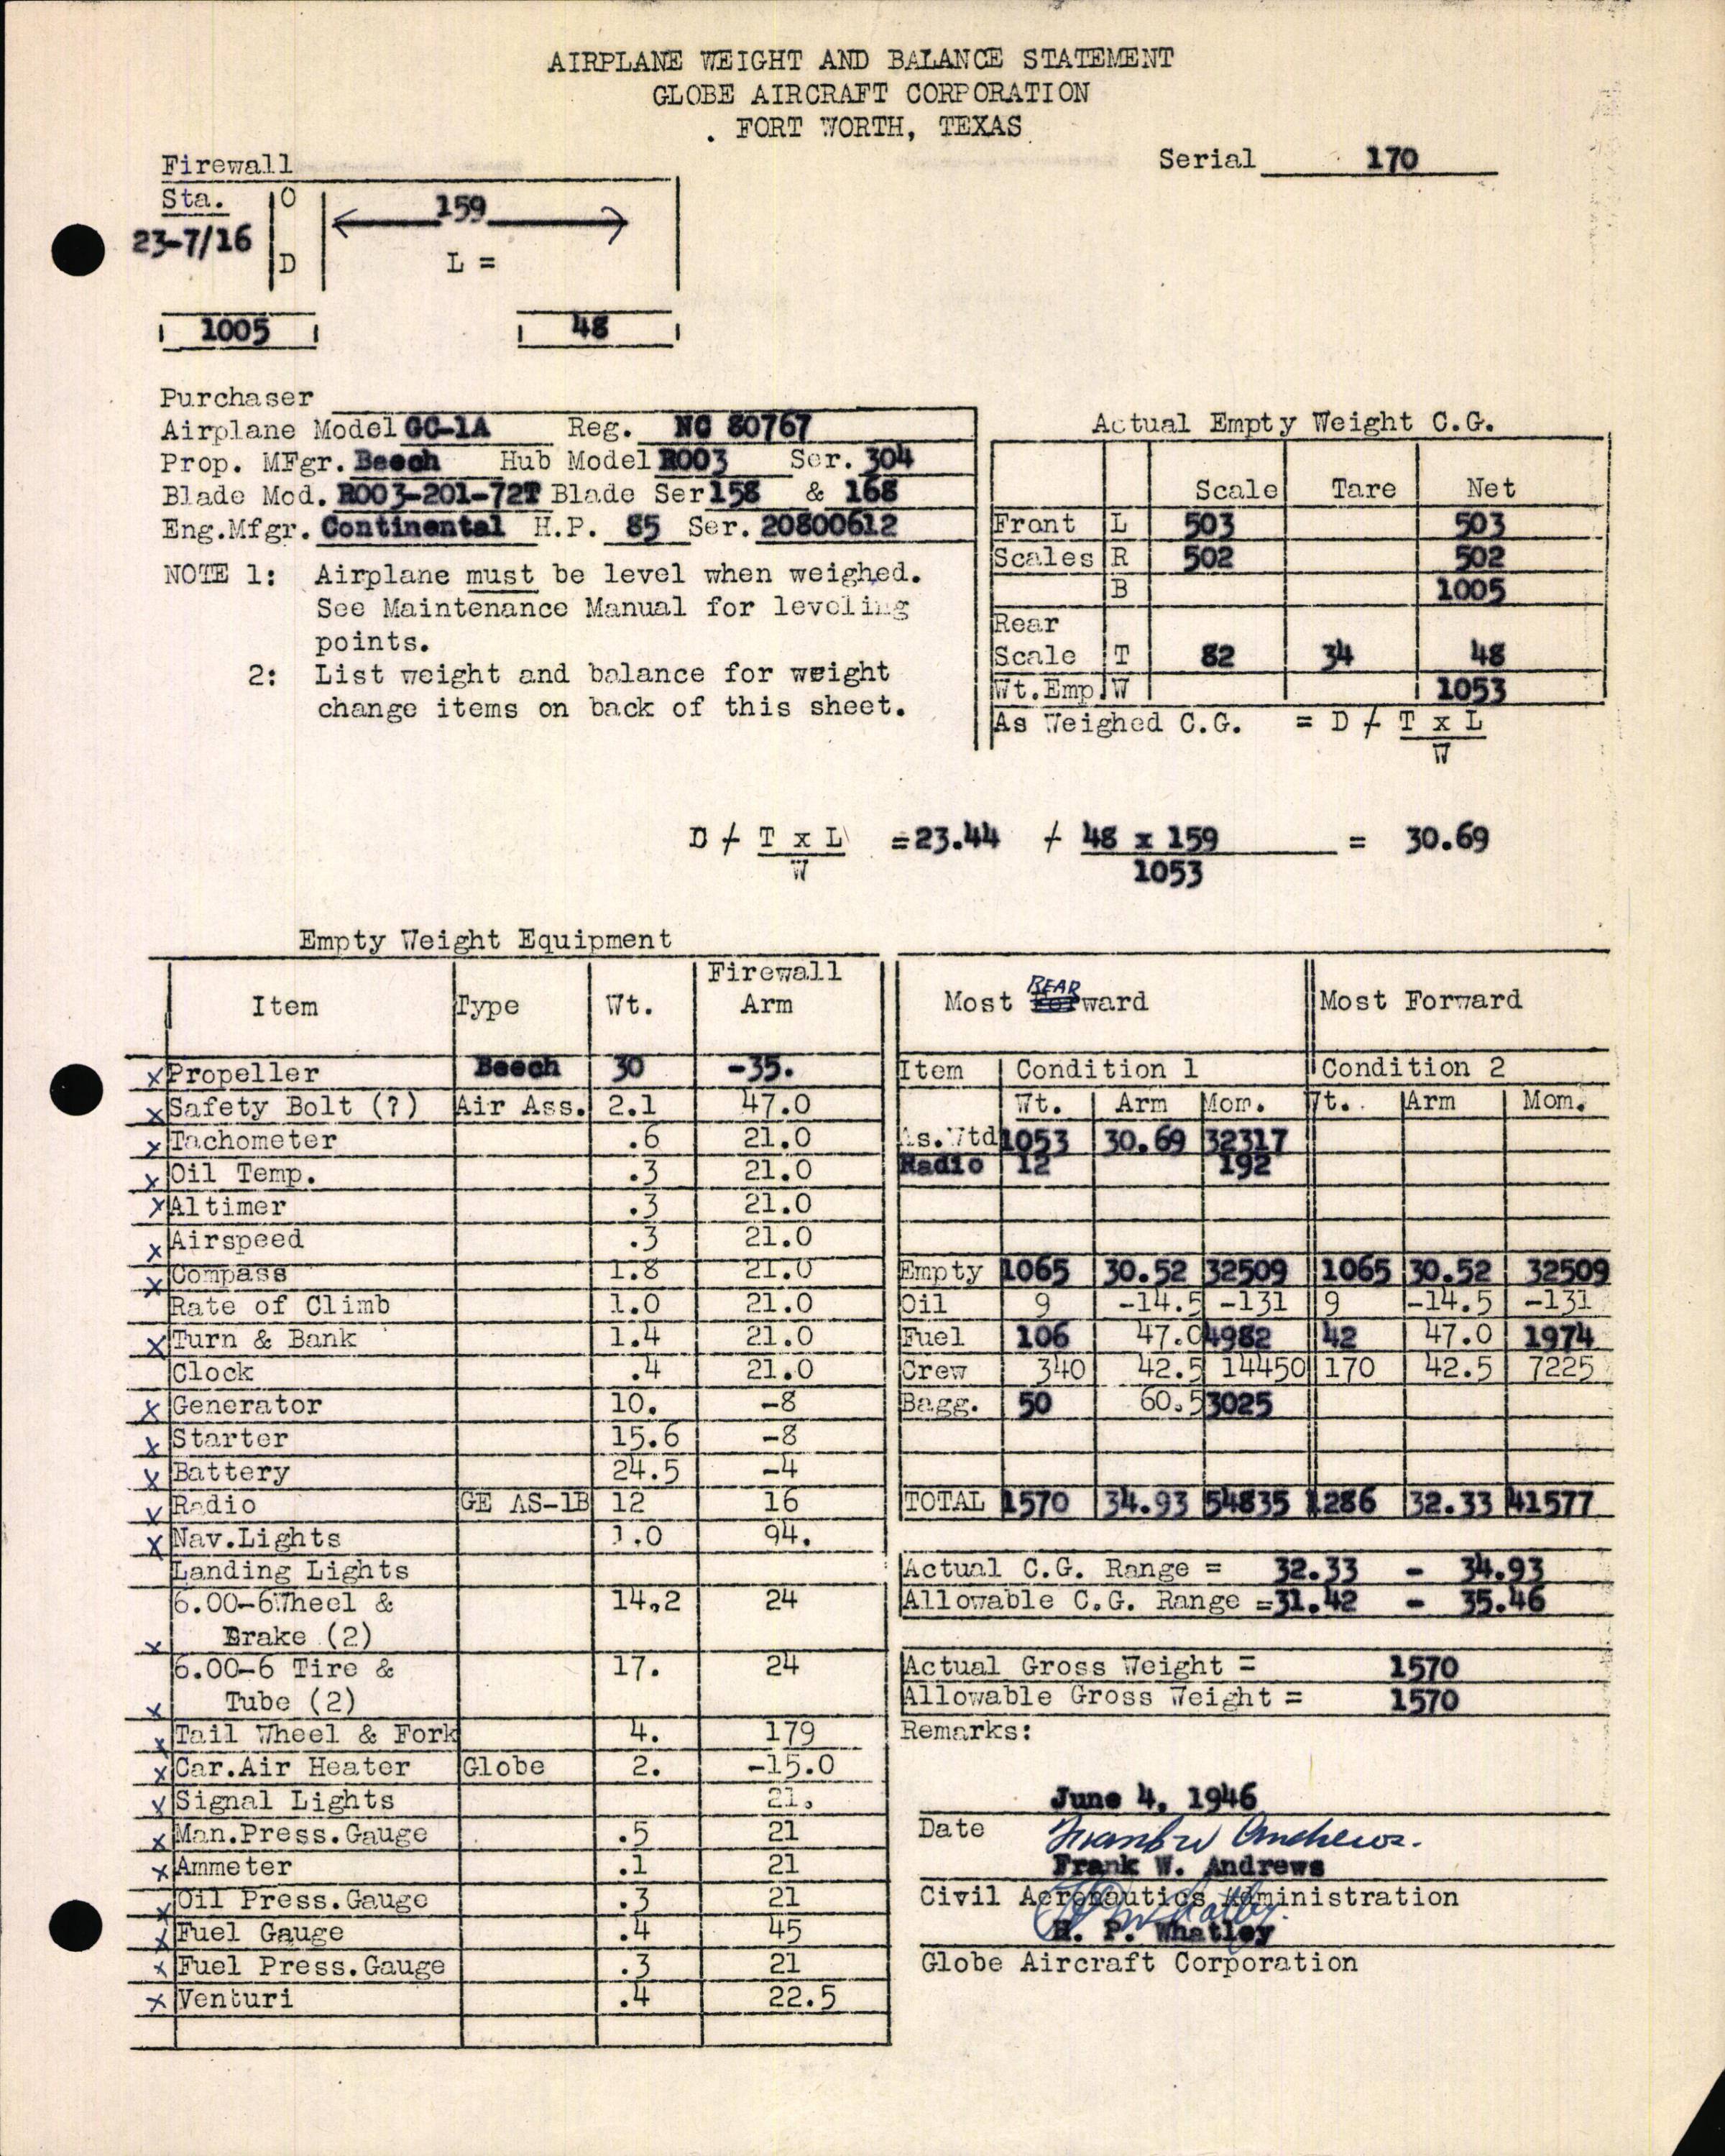 AIRPLANE WEIGHT AND BALANCE STATEMENT
GLOBE AIRCRAFT CORPORATION
. FORT WORTH, TEXAS
Serial 170
Firewall
Sta. O
23-7/16 159
D L =
1005 48
Purchaser
Airplane Model GC-1A Reg. NC 80767
Prop. MFgr. Beech Hub Model R003 Ser. 304
Blade Mod. R003-201-72T Blade Ser 158 & 168
Eng.Mfgr. Continental H.P. 85 Ser. 20800612
NOTE 1: Airplane must be level when weighed.
See Maintenance Manual for leveling
points.
2: List weight and balance for weight
change items on back of this sheet.
Actual Empty Weight C.G.
Scale Tare Net
Front L 503 503
Scales R 502 502
B 1005
Rear
Scale T 82 34 48
Wt.Emp. W 1053
As Weighed C.G. = D / T x L
W
D / T x L = 23.44 / 48 x 159 = 30.69
W 1053
Empty Weight Equipment
Firewall
Item Type Wt. Arm
x Propeller Beech 30 -35.
x Safety Bolt (?) Air Ass. 2.1 47.0
x Tachometer .6 21.0
x Oil Temp. .3 21.0
x Altimer .3 21.0
x Airspeed .3 21.0
x Compass 1.8 21.0
Rate of Climb 1.0 21.0
x Turn & Bank 1.4 21.0
Clock .4 21.0
x Generator 10. -8
x Starter 15.6 -8
x Battery 24.5 -4
x Radio GE AS-1B 12 16
x Nav.Lights 1.0 94.
Landing Lights
6.00-6Wheel & 14.2 24
x Brake (2)
6.00-6 Tire & 17. 24
x Tube (2)
x Tail Wheel & Fork 4. 179
x Car.Air Heater Globe 2. -15.0
x Signal Lights 21.
x Man.Press.Gauge .5 21
x Ammeter .1 21
x Oil Press.Gauge .3 21
x Fuel Gauge .4 45
x Fuel Press.Gauge .3 21
x Venturi .4 22.5
REAR
Most Forward Most Forward
Item Condition 1 Condition 2
Wt. Arm Mom. Wt. Arm Mom.
As.Wtd 1053 30.69 32317
Radio 12 192
Empty 1065 30.52 32509 1065 30.52 32509
Oil 9 -14.5 -131 9 -14.5 -131
Fuel 106 47.0 4982 42 47.0 1974
Crew 340 42.5 14450 170 42.5 7225
Bagg. 50 60.5 3025
TOTAL 1570 34.93 54835 1286 32.33 41577
Actual C.G. Range = 32.33 - 34.93
Allowable C.G. Range = 31.42 - 35.46
Actual Gross Weight = 1570
Allowable Gross Weight = 1570
Remarks:
June 4, 1946
Date Frank W Andrews.
Frank W. Andrews
Civil Aeronautics Administration
H. P. Whatley
Globe Aircraft Corporation